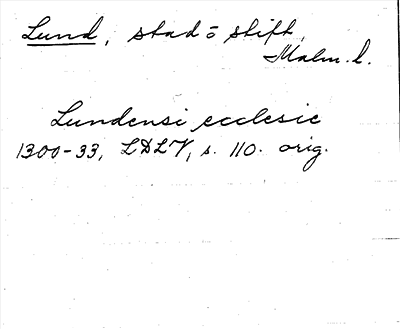 Lund, stad o stift,
Malm. l.
Lundensi ecclesie
1300-33, LDLV, s. 110. orig.